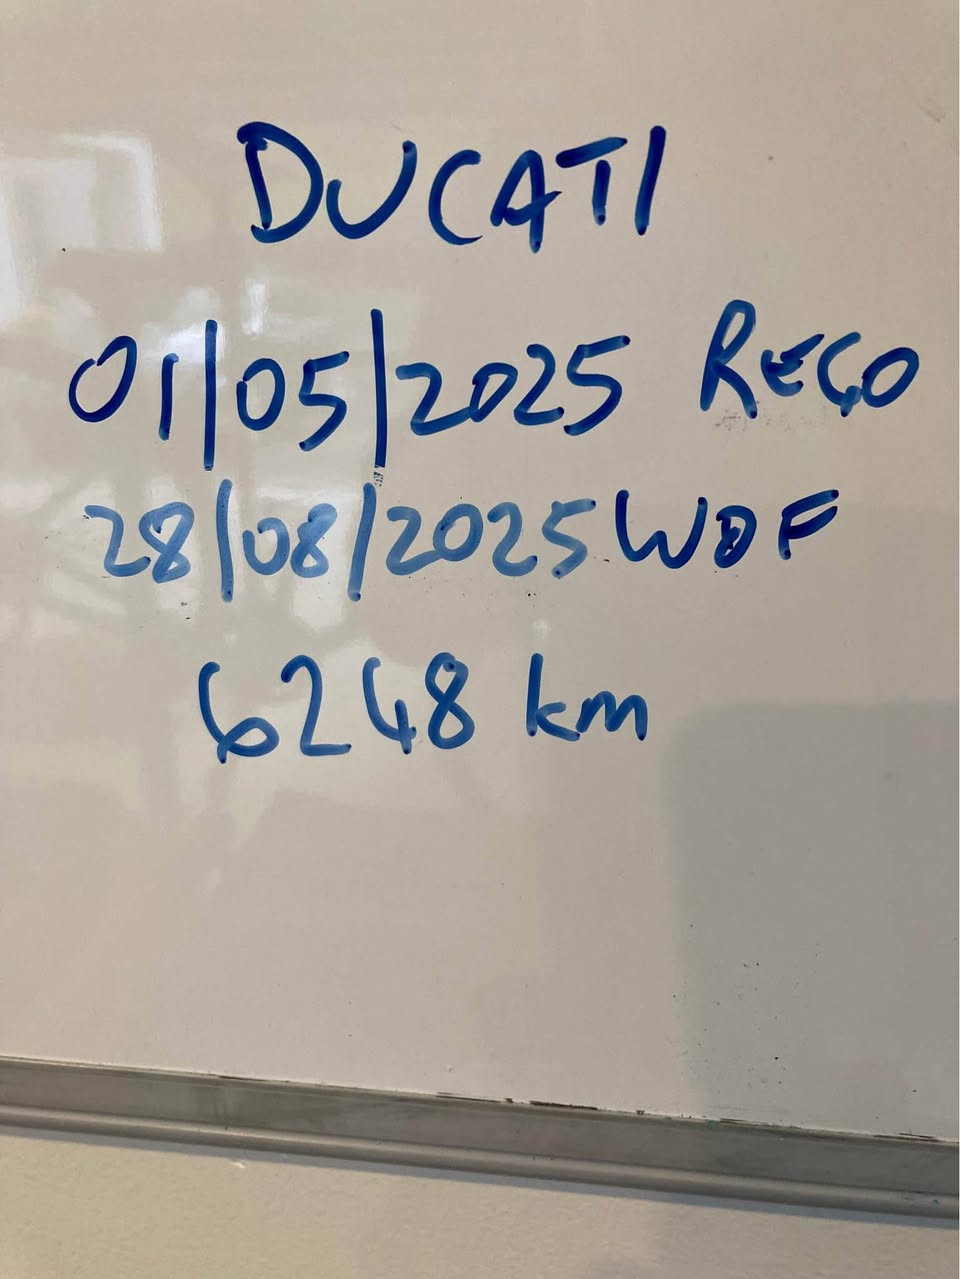 DUCATI
01/05/2025 REGO
28/08/2025 WOF
6248 km